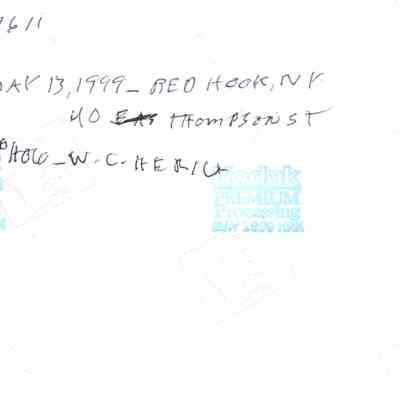 611
MAY 13, 1999_ RED HOOK, NY
40 THOMPSON ST
PHOTO_W.C. HERIG
Kodak
PREMIUM
Processing